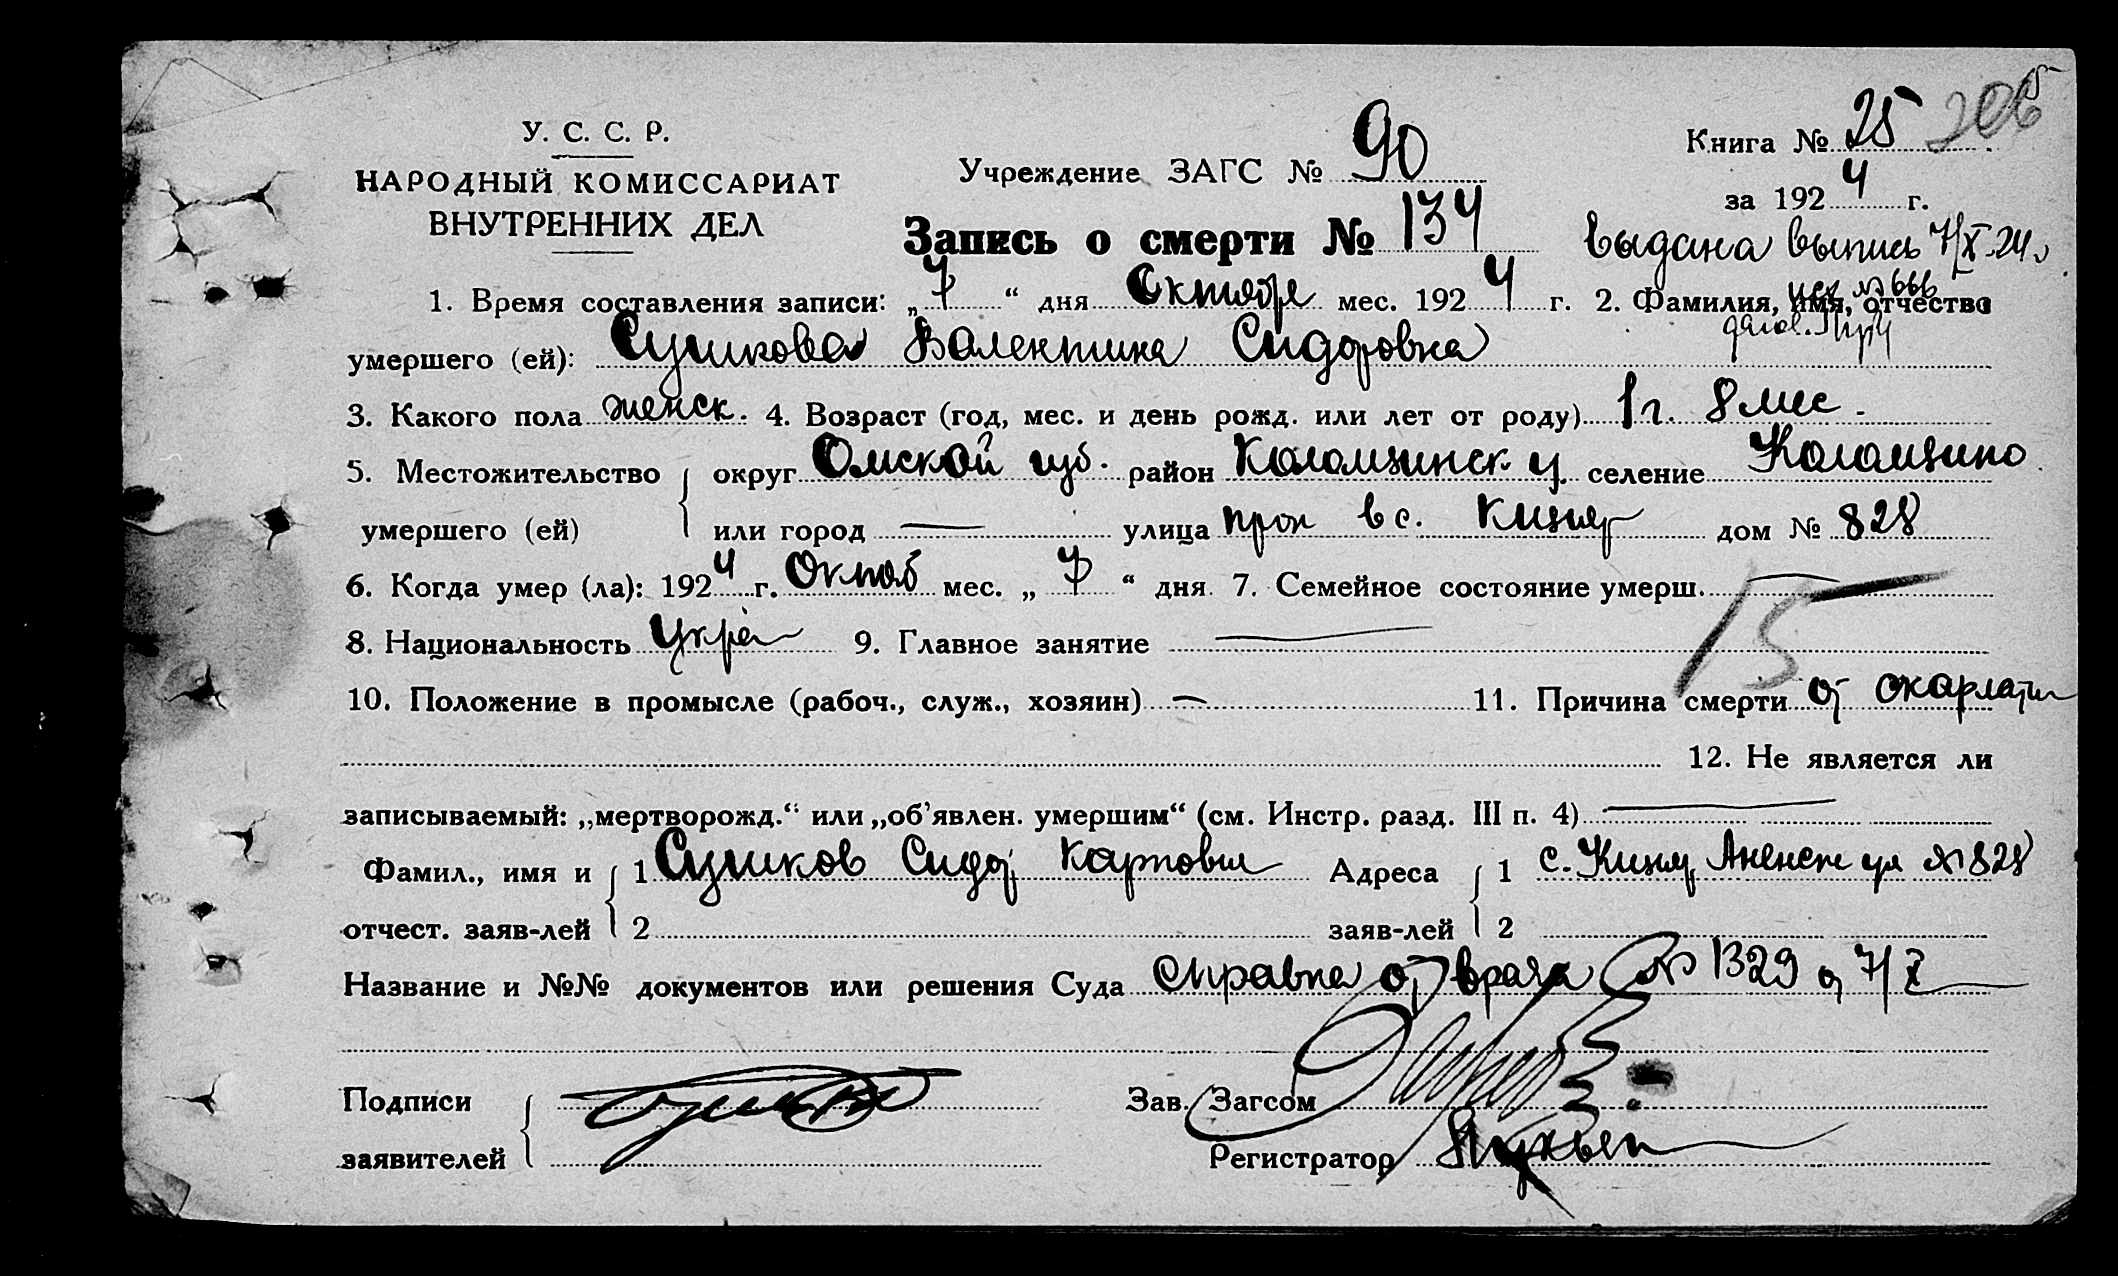 У. С. С. Р.
НАРОДНЫЙ КОМИССАРИАТ
ВНУТРЕННИХ ДЕЛ
Учреждение ЗАГС № 90
Книга № 25 206
за 1924 г.
Запись о смерти № 134
выдана выпись 7/X-24 г
исх № 666
1. Время составления записи: „7“ дня Октября мес. 1924 г. 2. Фамилия, имя, отчество
умершего (ей): Сушкова Валентина Сидоровна
3. Какого пола женск. 4. Возраст (год, мес. и день рожд. или лет от роду) 1 г. 8 мес.
5. Местожительство округ Омской губ. район Калачинск у. селение
умершего (ей) или город — улица вс. дом № 828
6. Когда умер (ла): 1924 г. Октяб мес. „7“ дня. 7. Семейное состояние умерш. —
15
8. Национальность Укра 9. Главное занятие —
10. Положение в промысле (рабоч., служ., хозяин) — 11. Причина смерти от скарлатин
12. Не является ли
записываемый: „мертворожд.“ или „об’явлен. умершим“ (см. Инстр. разд. III п. 4) —
Фамил., имя и 1 Сушков Сидор Карпович Адреса 1 с. ул № 828
отчест. заяв-лей 2 заяв-лей 2
Название и №№ документов или решения Суда справка от врача № 1329 от 7/X
Подписи
Зав. Загсом
заявителей
Регистратор